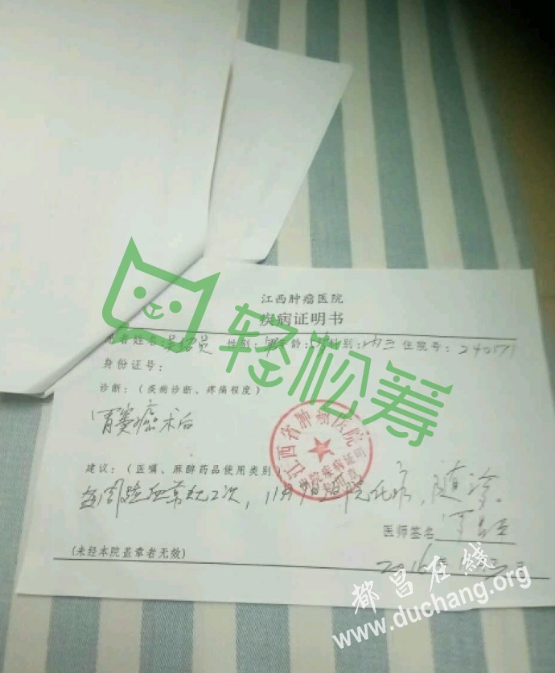 江西肿瘤医院
疾病证明书
患者姓名: 性别: 男 年龄: 科别: 内三 住院号: 240571
身份证号:
诊断:(疾病诊断、疼痛程度)
胃窦癌术后
建议:(医嘱、麻醉药品使用类别)
每周验血常规2次, 随诊。
医师签名
(未经本院盖章者无效)
2016
江西省肿瘤医院
疾病证明
轻松筹
都昌在线
www.duchang.org